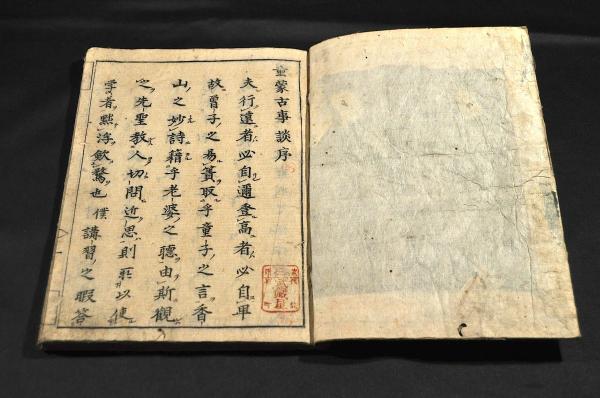 童蒙古事談序
夫行遠者必自邇登高者必自卑
故曽子之易簀取乎童子之言香
山之妙詩藉乎老婆之聴由斯観
之先聖教人切問近思則 以使
学者 浮 也僕講習之暇答